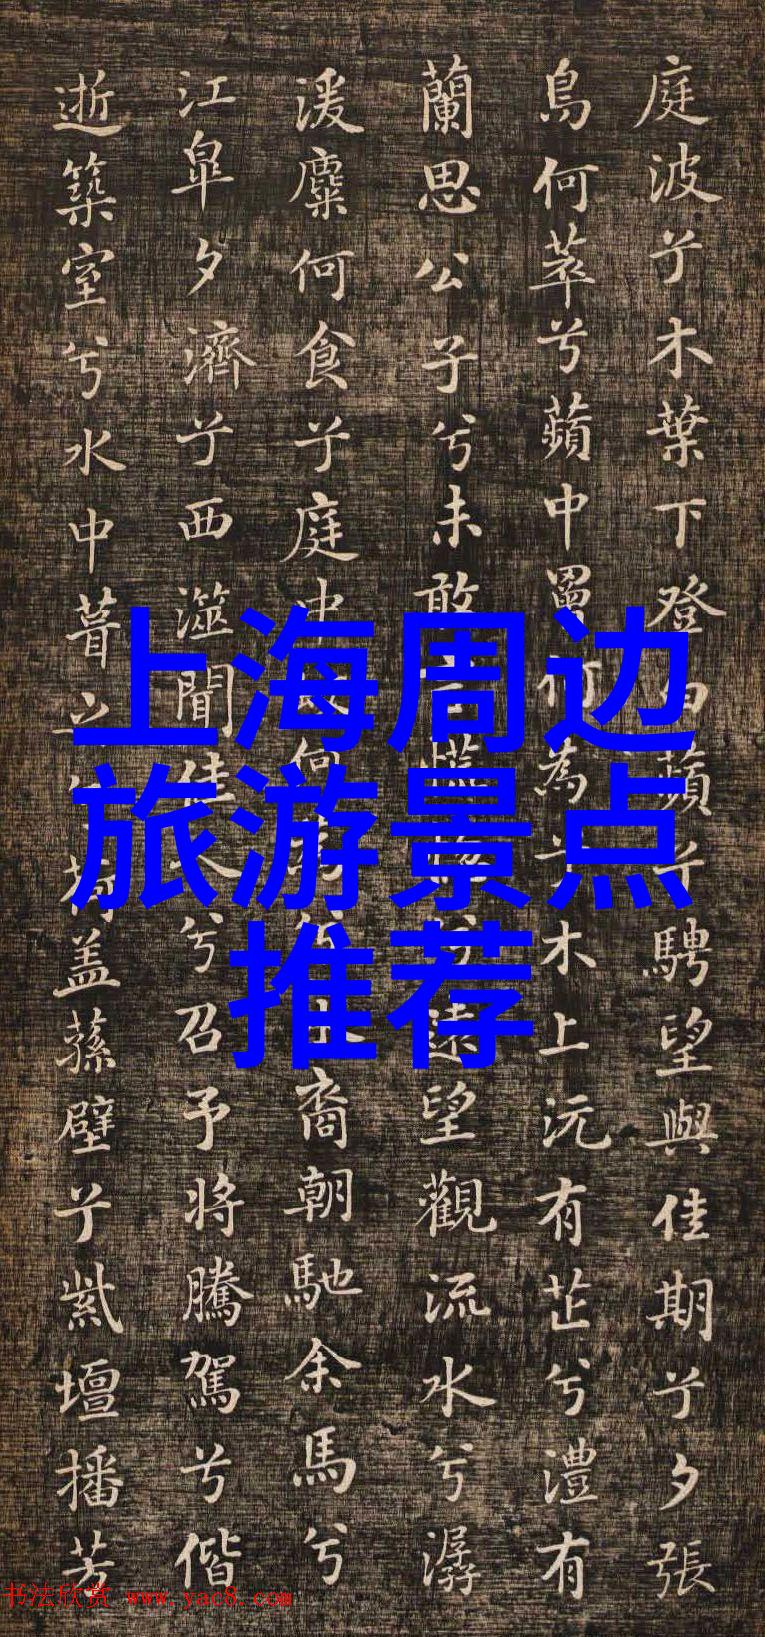 庭波兮木葉下登白蘋兮騁望與佳期兮夕張
鳥何萃兮蘋中罾何為兮木上沅有芷兮澧有
蘭思公子兮未敢慌兮遠望觀流水兮潺
湲麋何食兮庭中何裔朝馳余馬兮
江皐夕濟兮西澨聞佳人兮召予將騰駕兮偕
逝築室兮水中葺之兮荷盖蓀壁兮紫壇播芳
上海周边
旅游景点
推荐
书法欣赏 www.yac8.com